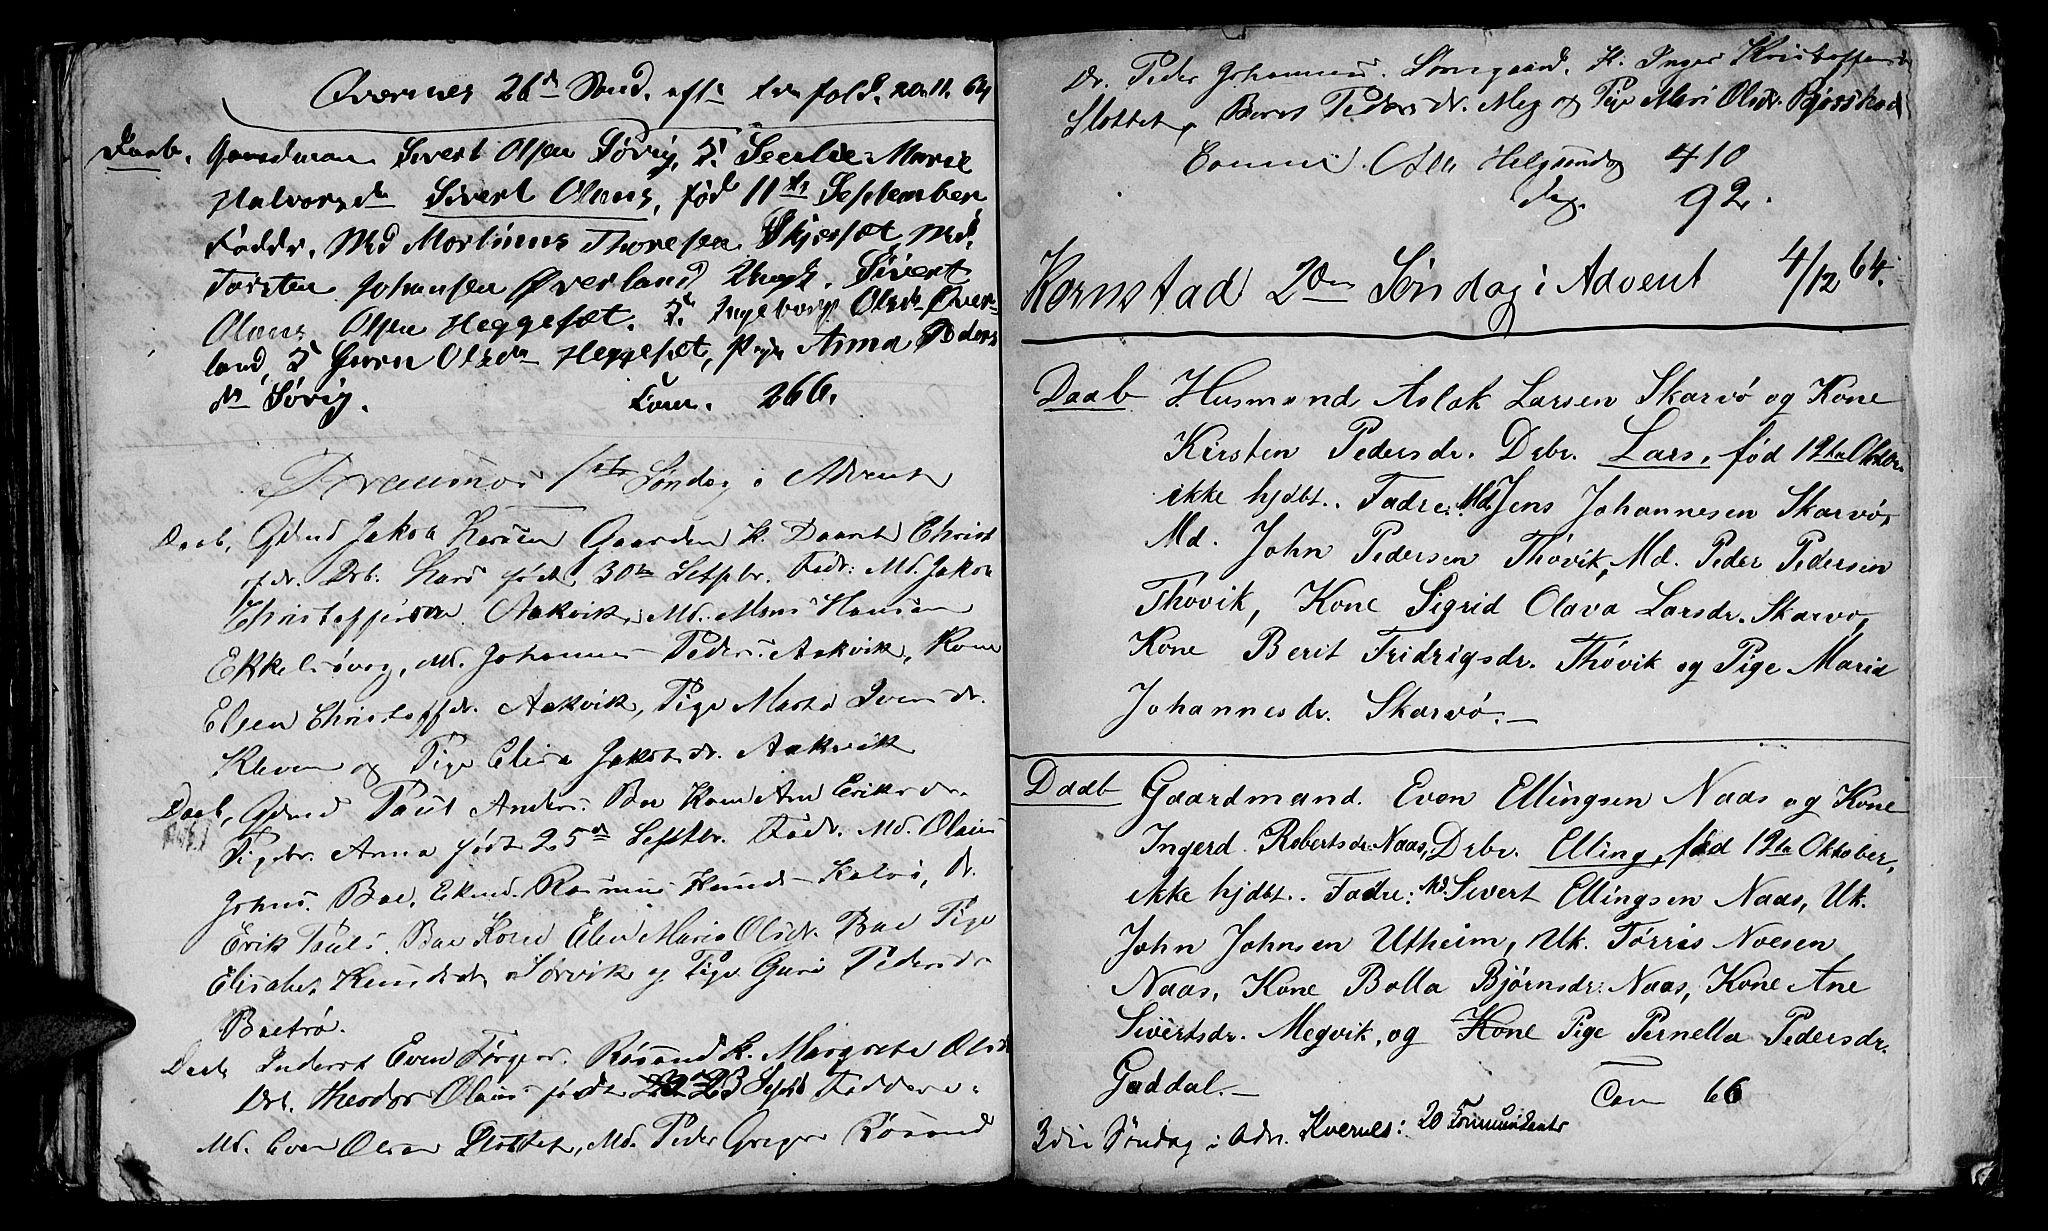 Qvernes 26de Sønd. eft. trefold. 20/11. 64
Daab. Gaardman Sivert Olsen Sørvig, K. Seselie Marie
Halvorsdr Sivert Olaus, fød 11te September
Faddr. Md Martinus Thoresen Skjerset, Md.
Torsten Johansen Øverland Ungk. Sivert
Olaus Olsen Heggeset. K. Ingeborg Olsdr Øver-
land, K Guru Olsdr Heggeset, pige Anna Peders
dr Sørvig. Com. 266.
Bremsnes 1ste Søndag i Advent
Daab, Gdmd Jakob Larsen Gaarden K. Daaret Christ
ofdr. Drb. Lars født 30te Setpbr. Fadr: Md. Jakob
Christoffersen Aakvik, Md. Mons Hansen
Ekkelsøvog, Md. Johannes Peders. Aakvik, Kone
Elsen Christoffdr. Aakvik, Pige Marta Iversdr.
Kleven og Pige Elisa Jakobsdr. Aakvik
Daab, Gdmd Paul Anders. Bae Kone Ane Eriksdr.
Pigebr. Anna født 25de Septbr. Fadr. Md. Olaus
Johns. Bae, Erik Pauls. Bae Kone Elen Maria Olsdr. Bae Pige
Elisabet Knudsdr Sørvik og Pige Guri Pedersdr
Bactrø.
Daab Inderst Even Gregers. Røsand K. Margrete Olsdr
Drb. Theodor Olaus født 23 Septb Faddere:
Md. Even Olsen Slottet, Md. Peder Greger Røsand
Dr. Peder Johannes. Sørgaard, K. Inger Kristoffersdr
Slottet, Beret Pedersdr. Meg og Pige Mari Olsdr.
Commu. Alle Helgensdag 410
dag. 92.
Kornstad 2den Søndag i Advent 4/12 64.
Daab Husmand Aslak Larsen Skarvø og Kone
Kirsten Pedersdr. Drbr. Lars, fød 12te Oktbr.
ikke hjdbt. Fadre: Md. Jens Johannesen Skarvø,
Md. John Pedersen Thøvik, Md. Peder Pedersen
Thøvik, Kone Sigrid Olava Larsdr. Skarvø,
Kone Berit Fridrigsdr. Thøvik og Pige Maria
Johannesdr. Skarvø.
Daab Gaardmand. Even Ellingsen Naas og Kone
Ingerd Robertsdr. Naas, Drbr. Elling, fød 12te Oktober,
ikke hjdbt. Fadre: Md. Sivert Ellingsen Naas, Uk.
John Johnsen Utheim, Uk. Tørris Noesen
Naas, Kone Bolla Bjørnsdr. Naas, Kone Ane
Sivertsdr. Megvik, og Kone Pige Pernella Pedersdr.
Gaddal.
Com 66
3die Søndag i Adv. Kvernes: 20 Kommunikanter